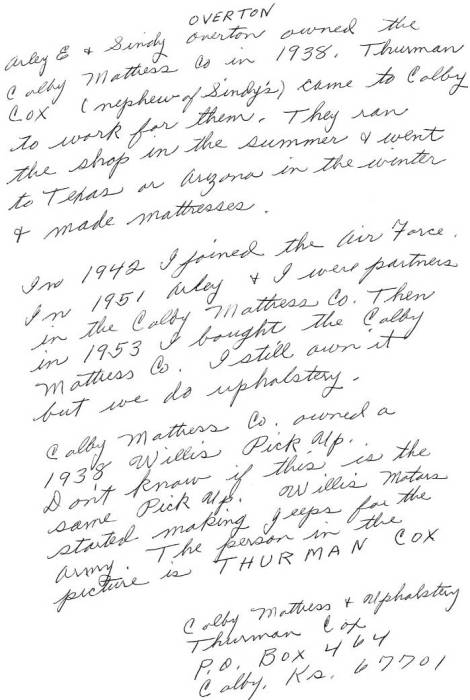 OVERTON
Arley E & Sindy Overton owned the
Colby Mattress Co in 1938. Thurman
Cox (nephew of Sindy's) came to Colby
to work for them. They ran
the shop in the summer & went
to Texas or Arizona in the winter
& made mattresses.
In 1942 I joined the Air Force.
In 1951 Arley & I were partners
in the Colby Mattress Co. Then
in 1953 I bought the Colby
Mattress Co. I still own it
but we do upholstery.
Colby Mattress Co. owned a
1938 Willis Pick Up.
Don't know if this is the
same Pick Up. Willis Motors
started making jeeps for the
Army. The person in the
picture is THURMAN COX
Colby Mattress & Upholstery
Thurman Cox
P.O. Box 464
Colby, Ks. 67701